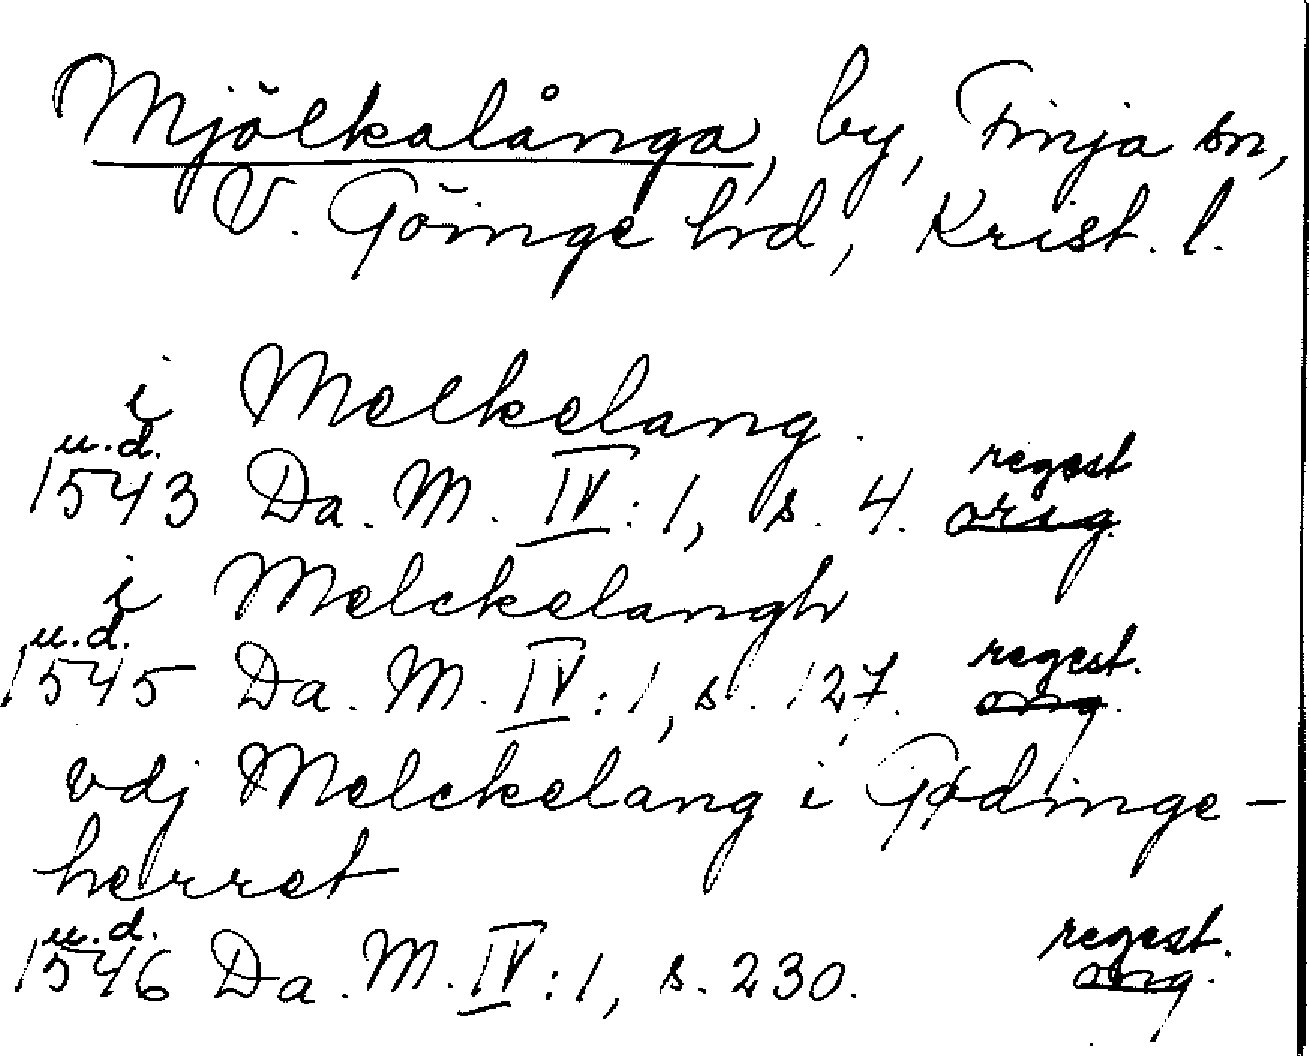 Mjölkalånga, by, Finja sn,
V. Göinge hrd, Krist. l.
i Melkelang.
u.d. regest
1543 Da. M. IV:1, s. 4. orig.
i Melckelangh
u.d. regest.
1545 Da. M. IV:1, s. 127. orig.
vdj Melckelang i Gødinge-
herret
u.d. regest.
1546 Da. M. IV:1, s. 230. orig.